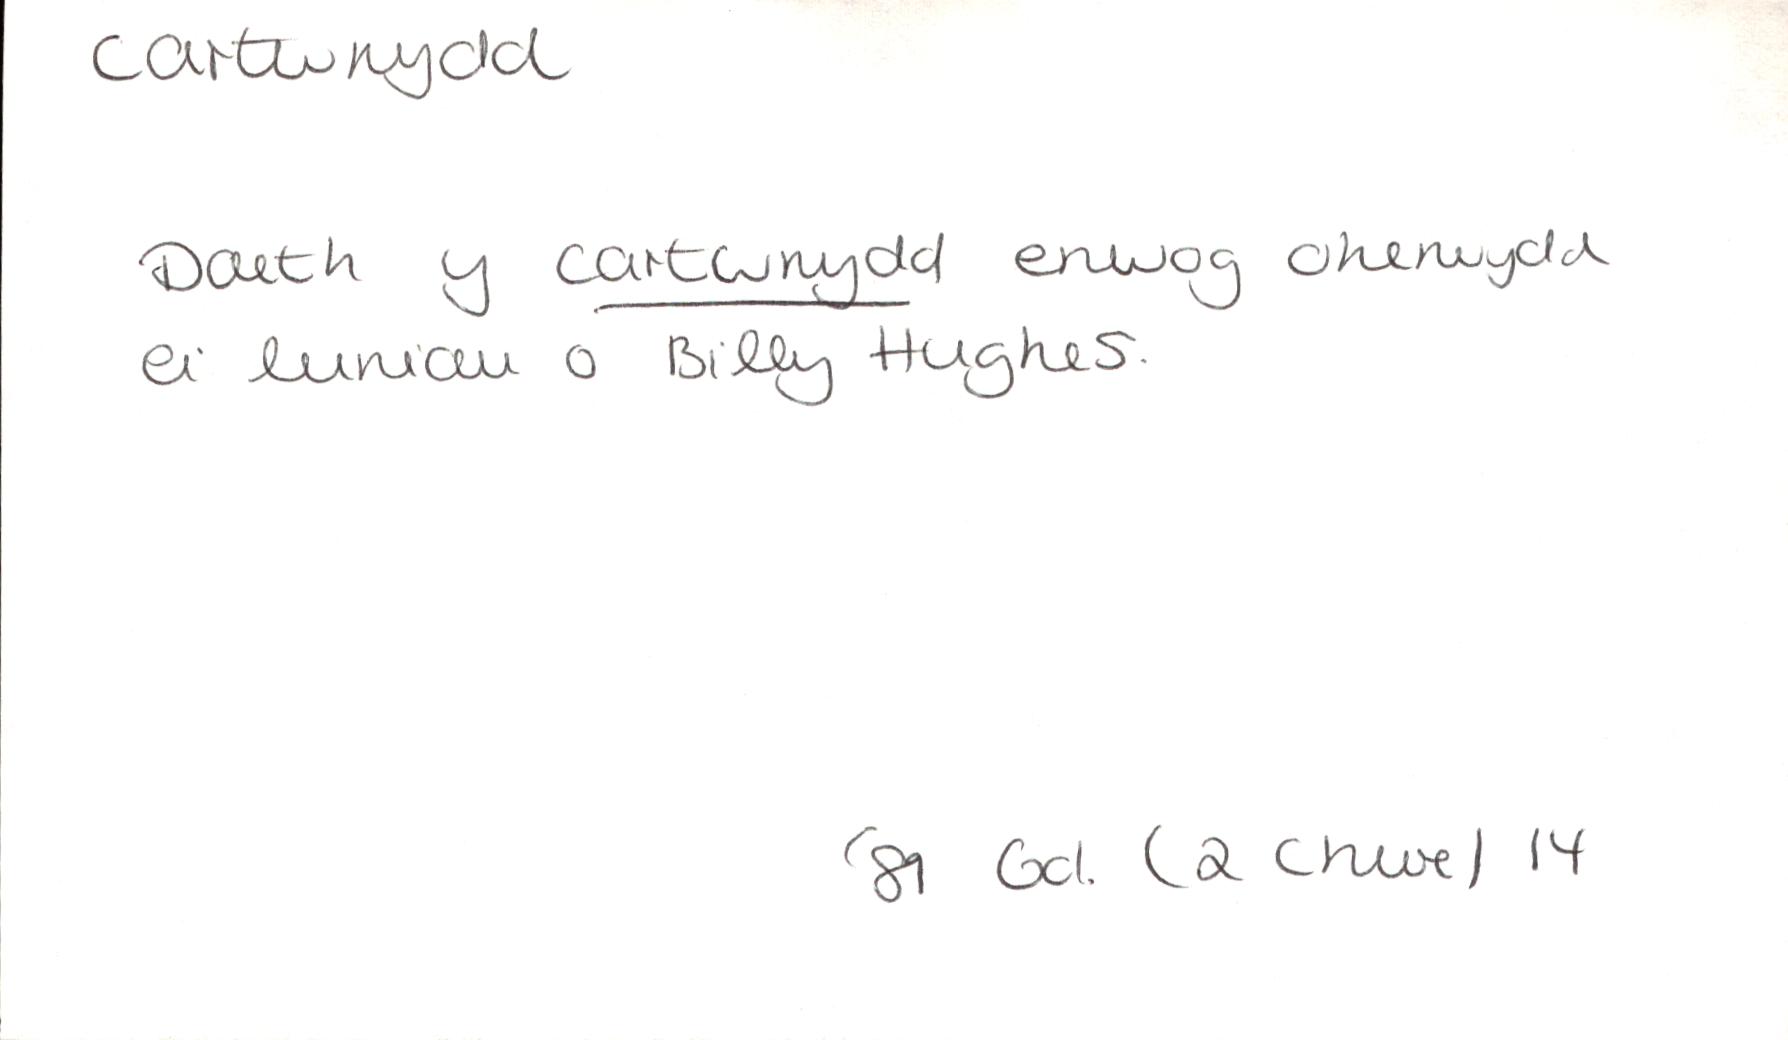 cartwnydd
Daeth y cartwnydd enwog oherwydd
ei luniau o Billy Hughes.
'89 Gol. (2 Chwe) 14